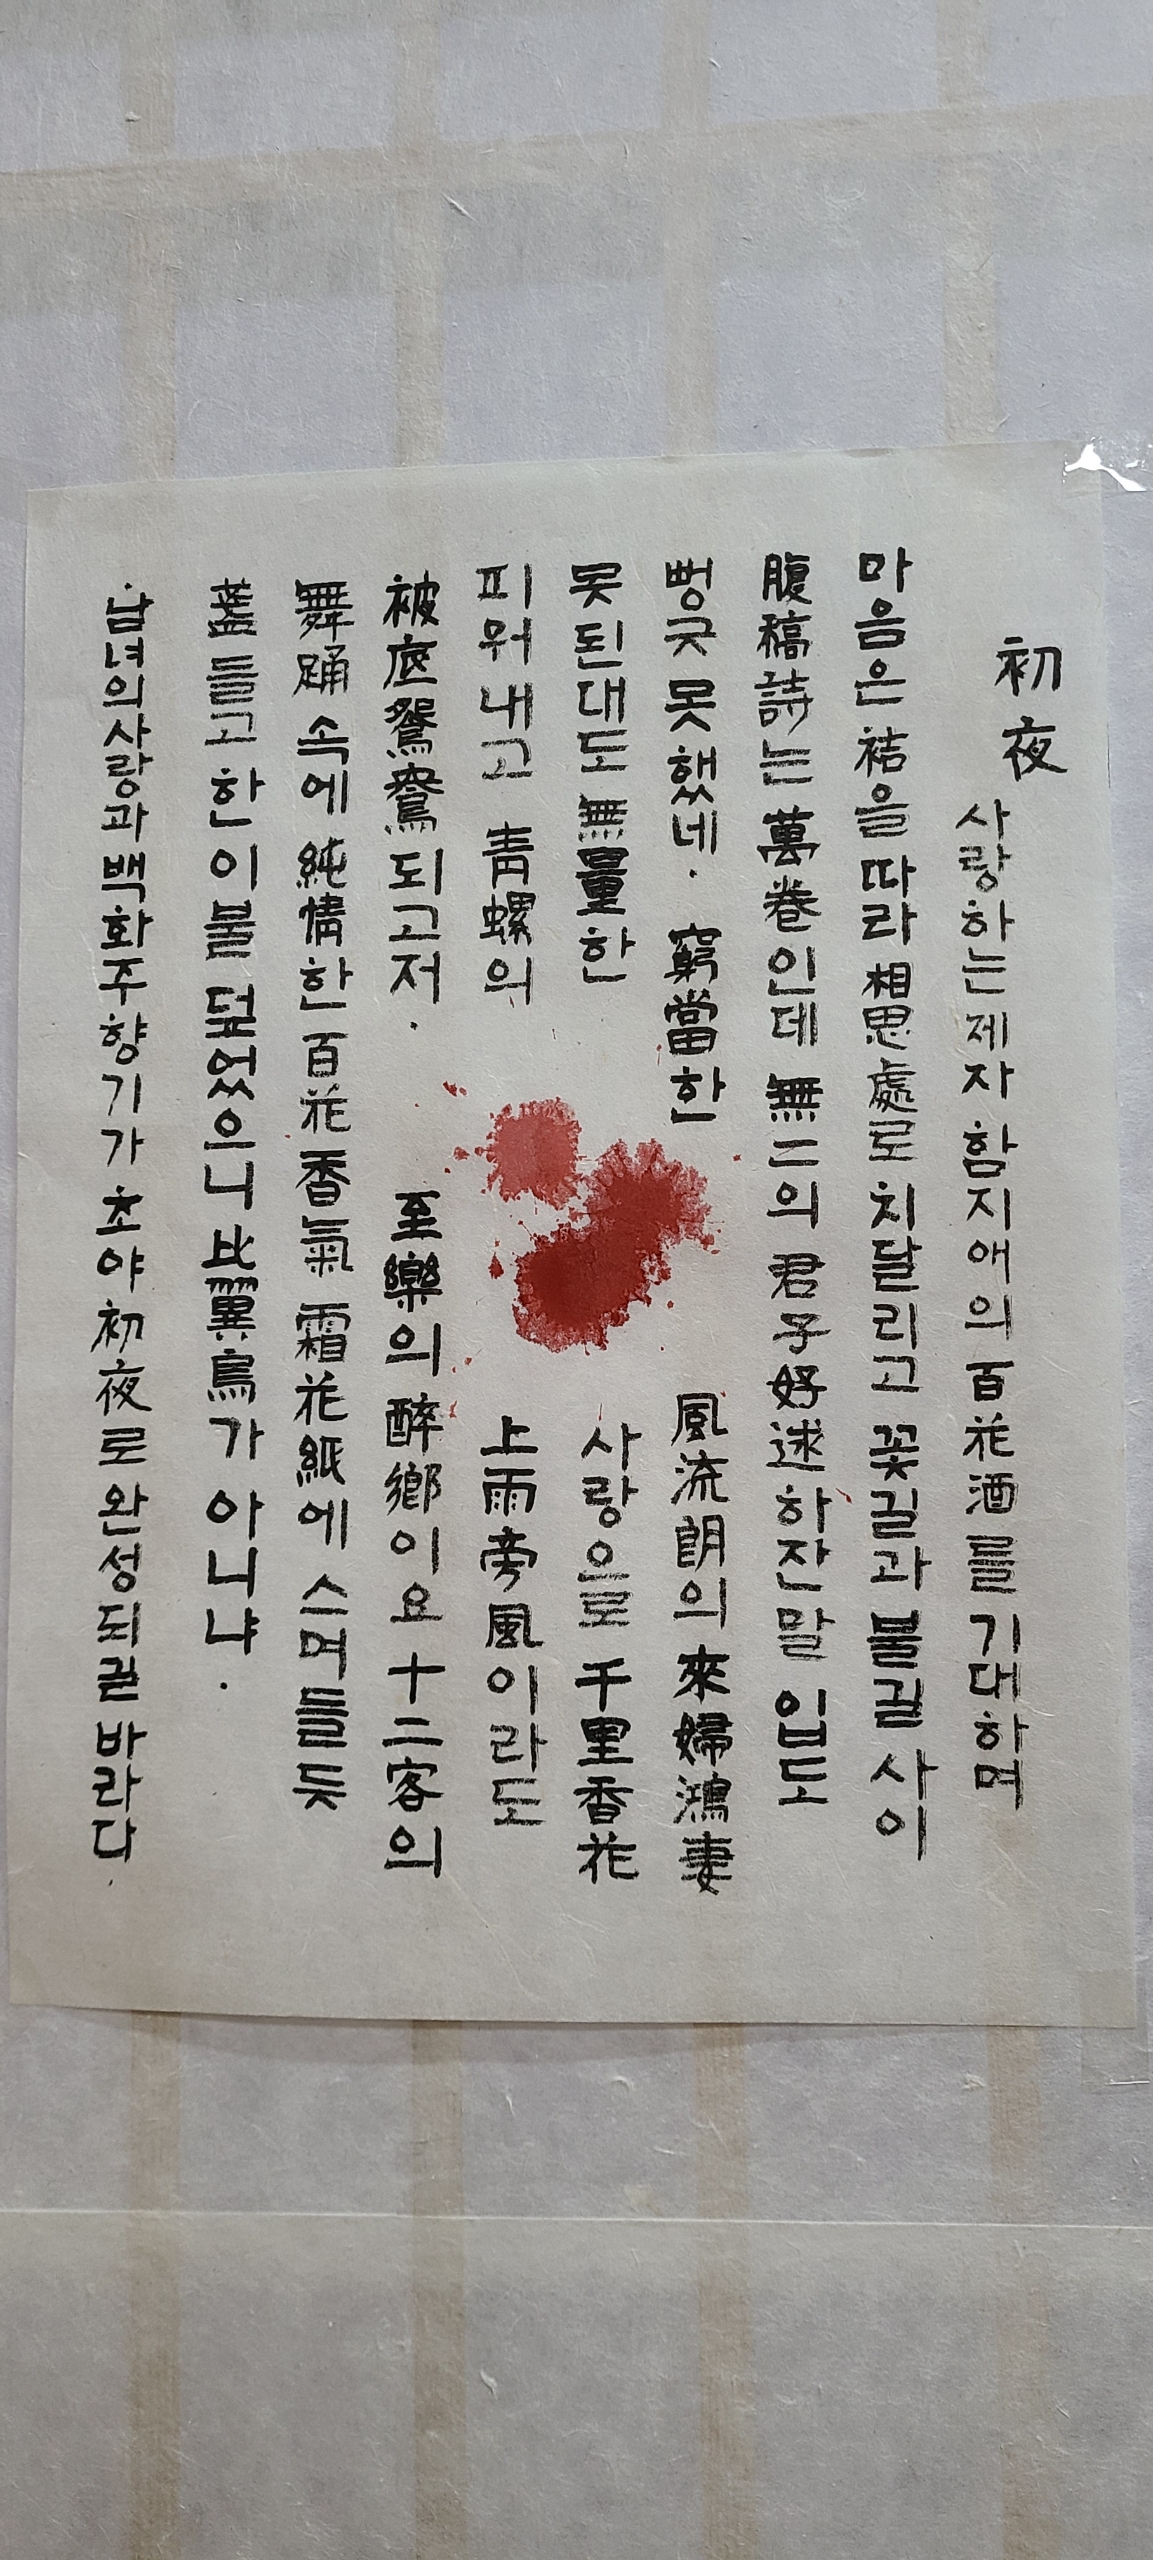 初夜
사랑하는제자 함지애의 百花酒를 기대하며
마음은 祜을 따라 相思處로 치달리고 꽃길과 불길 사이
腹稿詩는 萬卷인데 無二의 君子好逑하잔말 입도
뻥긋 못했네. 窮當한 風流朗의 來婦鴻妻
못된대도 無量한 사랑으로 千里香花
피워내고 靑螺의 上雨旁風이라도
被底鴛鴦되고저. 至樂의 醉鄉이요 十二客의
舞踊속에 純情한 百花香氣 霜花紙에 스며들듯
盞들고 한이불 덮었으니 比翼鳥가 아니냐.
남녀의사랑과 백화주향기가 초야初夜로 완성되귿 바라다.